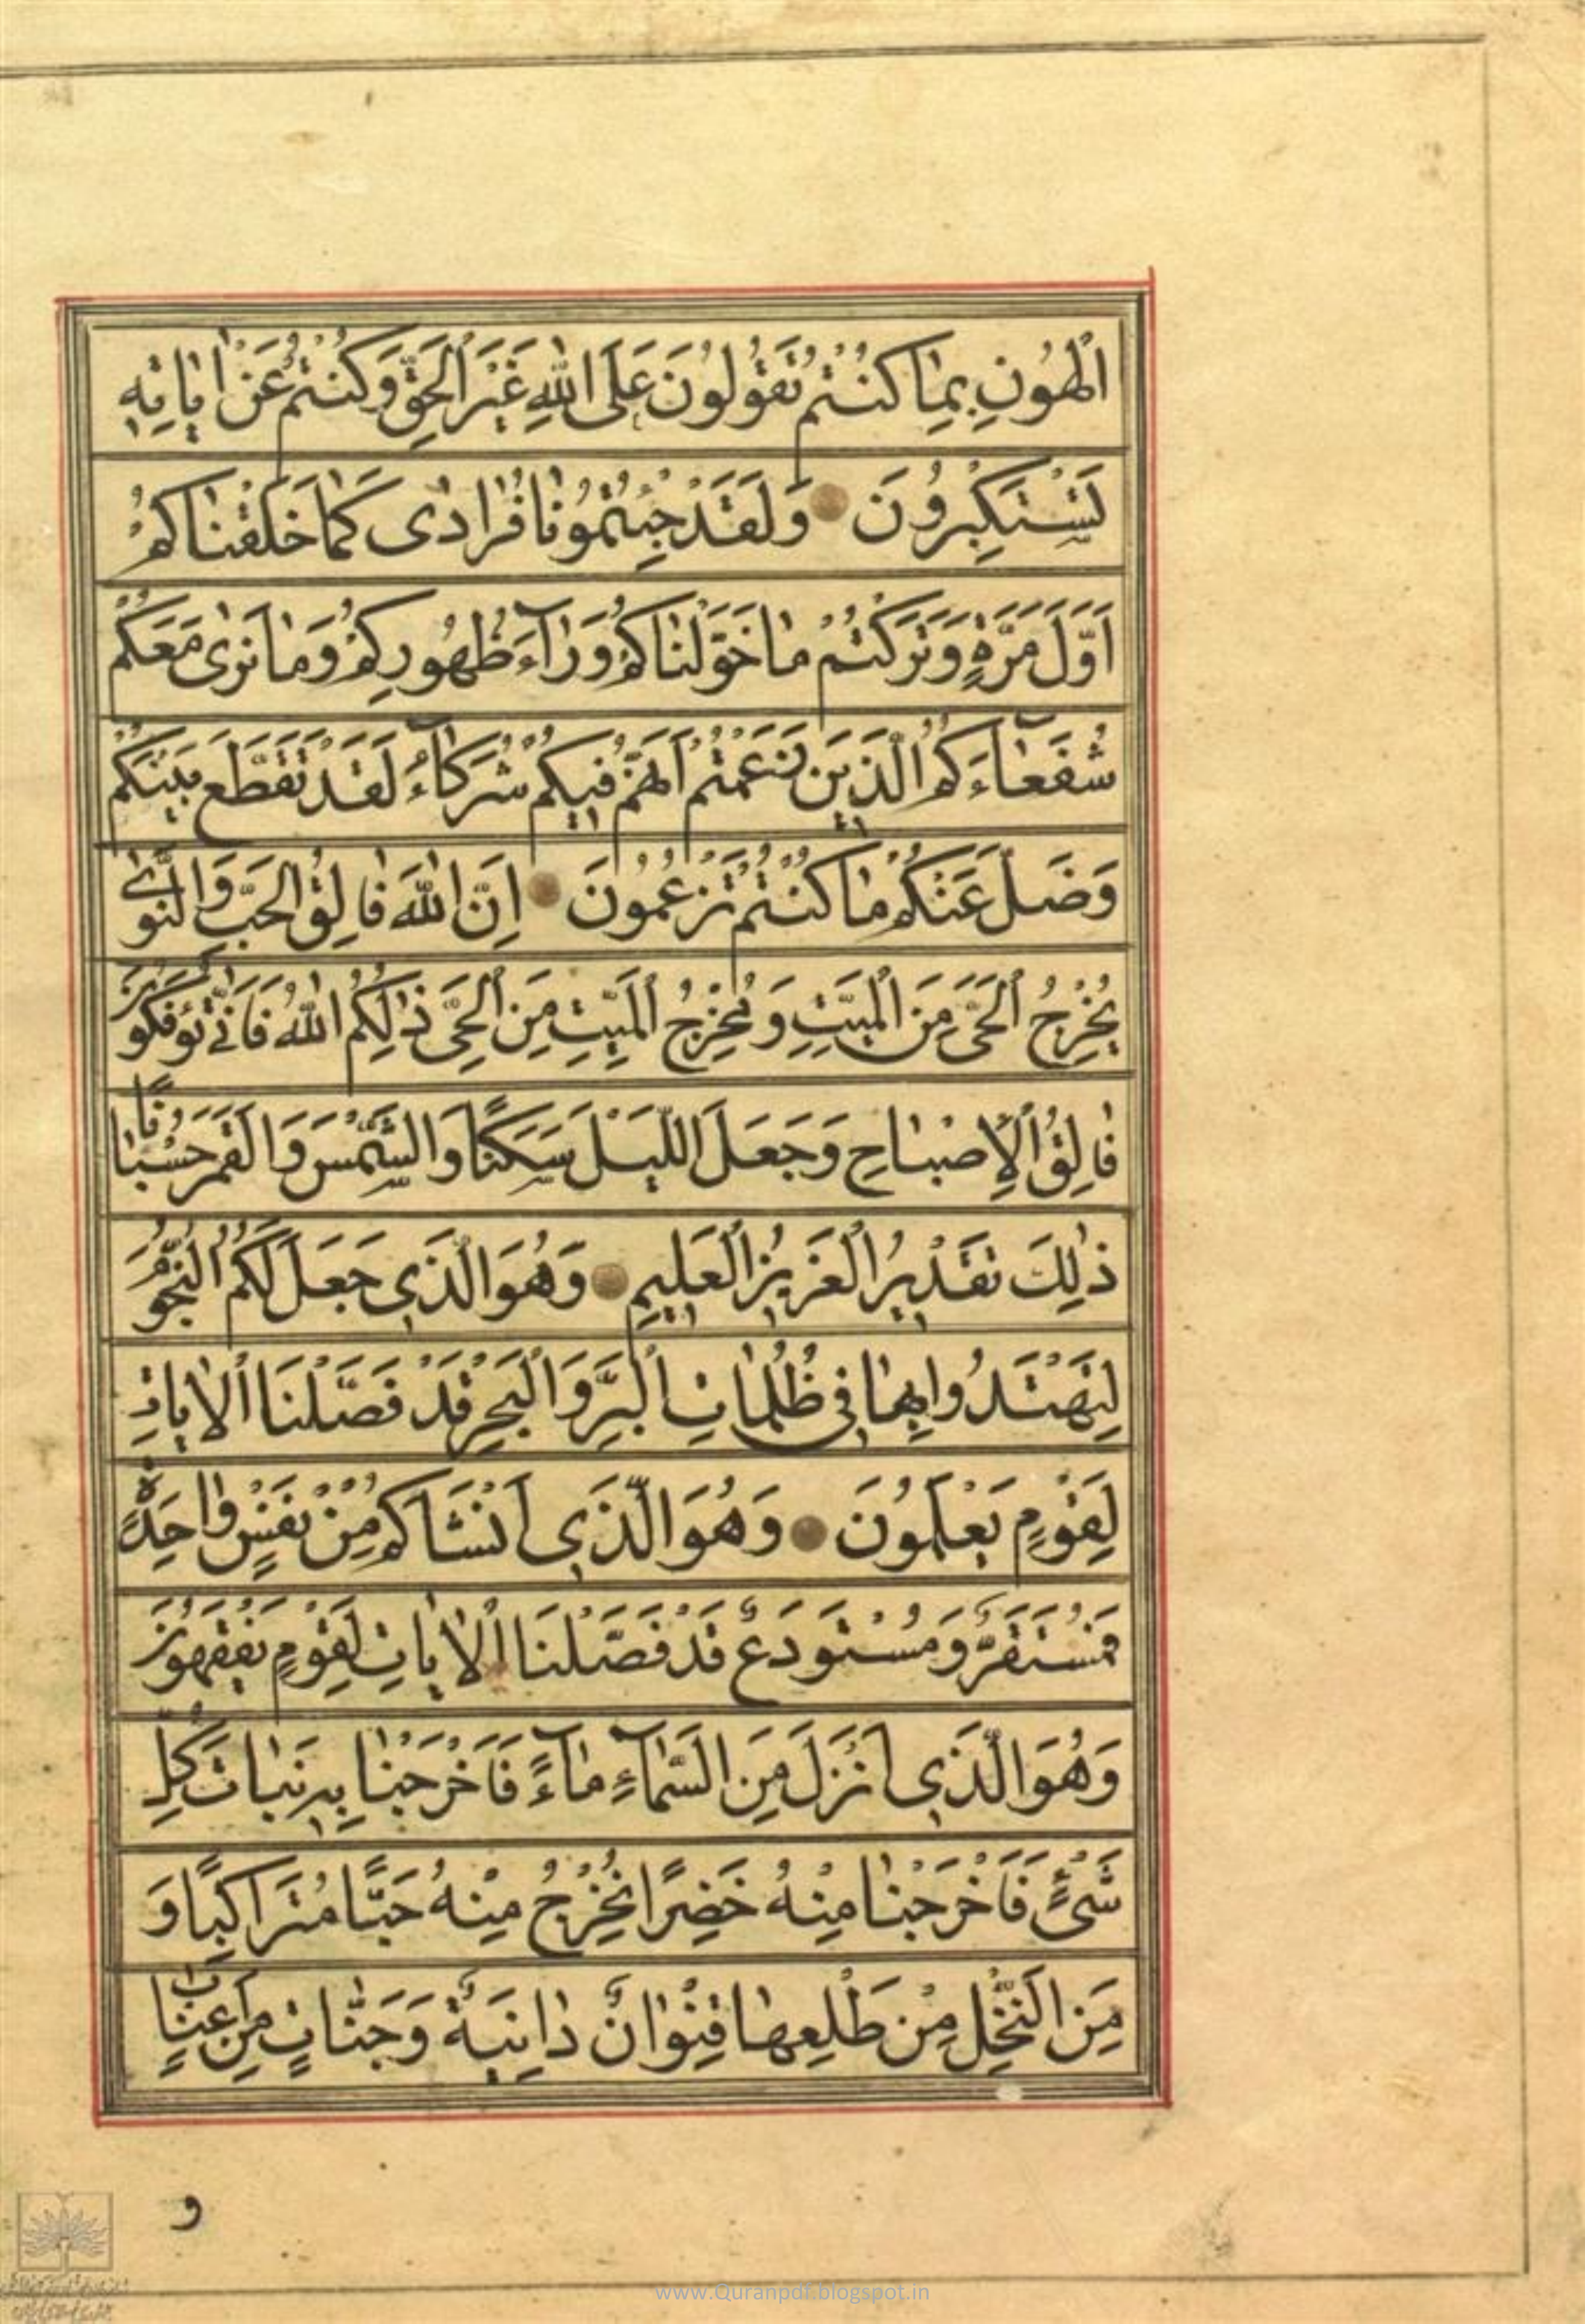 الْهُونِ بِمٰا كُنْتُمْ تَقُولُونَ عَلَى اللّٰهِ غَيْرَ الْحَقِّ وَكُنْتُمْ عَنْ اٰيٰاتِهِ
تَسْتَكْبِرُونَ وَلَقَدْ جِئْتُمُونٰا فُرٰادٰى كَمٰا خَلَقْنٰاكُمْ
اَوَّلَ مَرَّةٍ وَتَرَكْتُمْ مٰا خَوَّلْنٰاكُمْ وَرٰآءَ ظُهُورِكُمْ وَمٰا نَرٰى مَعَكُمْ
شُفَعٰآءَكُمُ الَّذَيِنَ زَعَمْتُمْ اَنَّهُمْ فيِكُمْ شُرَكٰآءُ لَقَدْ تَقَطَّعَ بَيْنَكُمْ
وَضَلَّ عَنْكُمْ مٰا كُنْتُمْ تَزْعُمُونَ اِنَّ اللّٰهَ فٰالِقُ الْحَبِّ وَالنَّوٰى
يُخْرِجُ الْحَىَّ مِنَ الْمَيِّتِ وَمُخْرِجُ الْمَيِّتِ مِنَ الْحَىِّ ذٰلِكُمُ اللّٰهُ فَاَنّٰى تُؤْفَكُونَ
فٰالِقُ الْاِصْبٰاحِ وَجَعَلَ اللَّيْلَ سَكَنًا وَالشَّمْسَ وَالْقَمَرَ حُسْبٰانًا
ذٰلِكَ تَقْديِرُ الْعَزيِزِ الْعَليِمِ وَهُوَ الَّذيِ جَعَلَ لَكُمُ النُّجُومَ
لِتَهْتَدُوا بِهٰا فيِ ظُلُمٰاتِ الْبَرِّ وَالْبَحْرِ قَدْ فَصَّلْنَا الْاٰيٰاتِ
لِقَوْمٍ يَعْلَمُونَ وَهُوَ الَّذيِ اَنْشَاَكُمْ مِنْ نَفْسٍ وٰاحِدَةٍ
فَمُسْتَقَرٌّ وَمُسْتَوْدَعٌ قَدْ فَصَّلْنَا الْاٰيٰاتِ لِقَوْمٍ يَفْقَهُونَ
وَهُوَ الَّذيِ اَنْزَلَ مِنَ السَّمٰآءِ مٰآءً فَاَخْرَجْنٰا بِهِ نَبٰاتَ كُلِّ
شَىْءٍ فَاَخْرَجْنٰا مِنْهُ خَضِرًا نُخْرِجُ مِنْهُ حَبًّا مُتَرَاكِبًا وَ
مِنَ النَّخْلِ مِنْ طَلْعِهٰا قِنْوٰانٌ دٰانِيَةٌ وَجَنّٰاتٍ مِنْ اَعْنٰابٍ
و
www.Quranpdf.blogspot.in